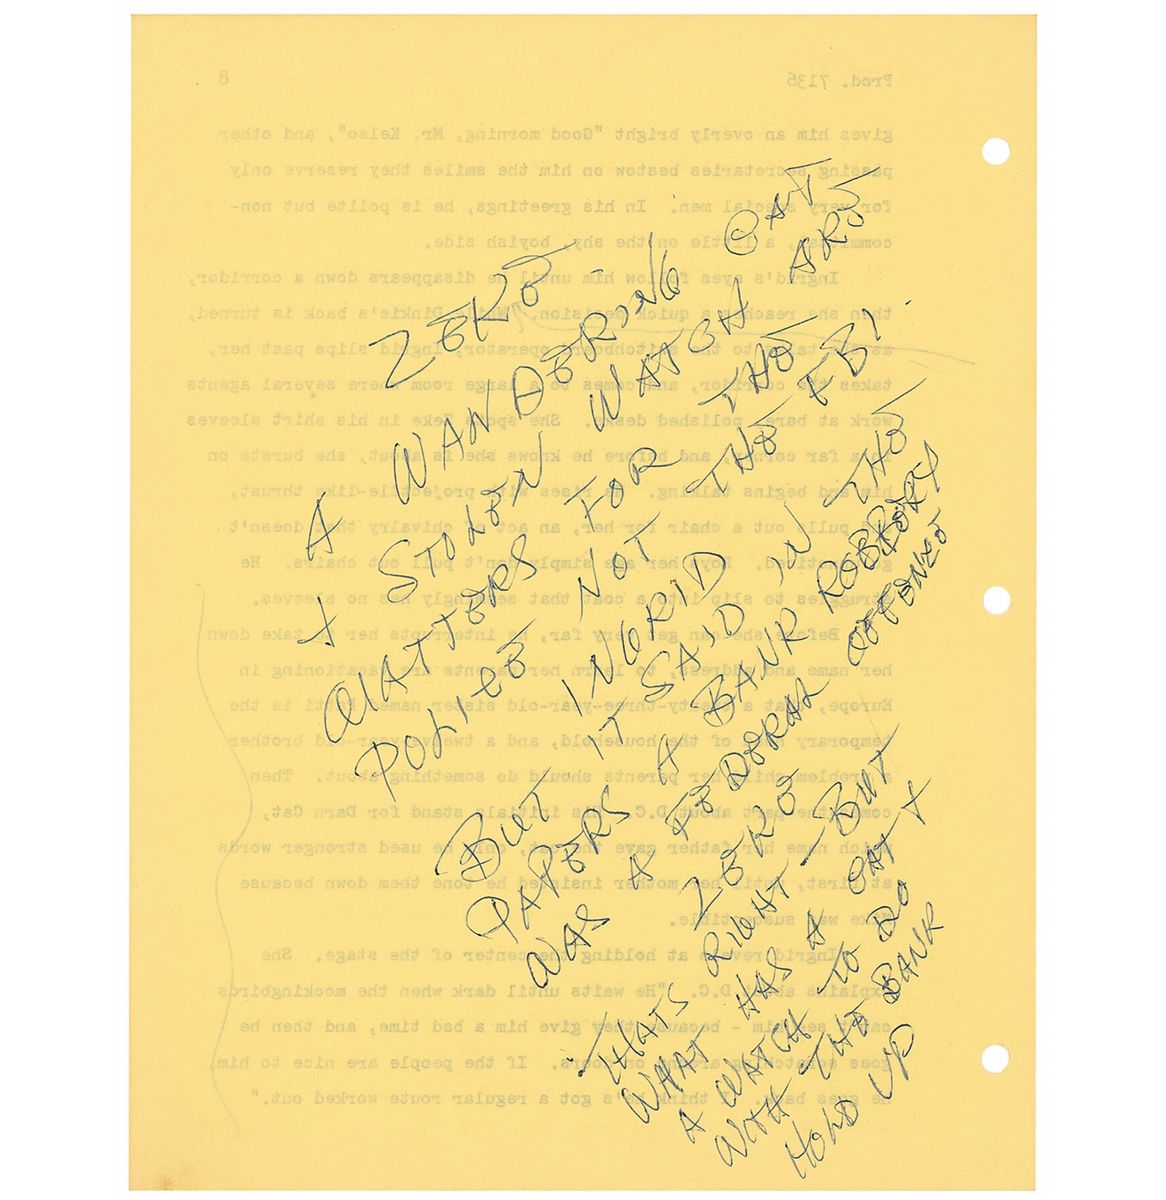 ZEKE -
A WANDERING CAT
+ STOLEN WATCH ARE
MATTERS FOR THE
POLICE NOT THE FBI.
INGRID
BUT IT SAID IN THE
PAPERS A BANK ROBBERY
WAS A FEDERAL OFFENCE
ZEKE
THATS RIGHT - BUT
WHAT HAS A CAT +
A WATCH TO DO
WITH THE BANK
HOLD UP
Prod. 7136 8
gives him an overly bright "Good morning, Mr. Kelso", and other
passing secretaries bestow on him the smiles they reserve only
for very special men. In his greetings, he is polite but non-
committal, a little on the shy, boyish side.
Ingrid's eyes follow him until he disappears down a corridor,
then she reaches a quick decision. While Dinkie's back is turned,
as talk to the switchboard operator, Ingrid slips past her,
takes the corridor, and comes to a large room where several agents
work at bare, polished desks. She spots Zeke in his shirt sleeves
in a far corner, and before he knows she is about, she bursts on
him and begins talking. He rises with projectile-like thrust,
and pulls out a chair for her, an act of chivalry that doesn't
go unnoticed. Boys her age simply don't pull out chairs. He
struggles to slip into a coat that seemingly has no sleeves.
Before she can get very far, he interrupts her to take down
her name and address, to learn her parents are vacationing in
Europe, that a twenty-three-year-old sister named Patti is the
temporary head of the household, and a twelve-year-old brother
a problem child her parents should do something about. Then
comes the part about D.C. His initials stand for Darn Cat,
which name her father gave the cat, only he used stronger words
at first, until her mother insisted he tone them down because
Mike was susceptible.
Ingrid revels at holding the center of the stage. She
explains about D.C. "He waits until dark when the mockingbirds
can't see him - because they give him a bad time, and then he
goes scratching around on doors. If the people are nice to him,
he goes back. I think he's got a regular route worked out."